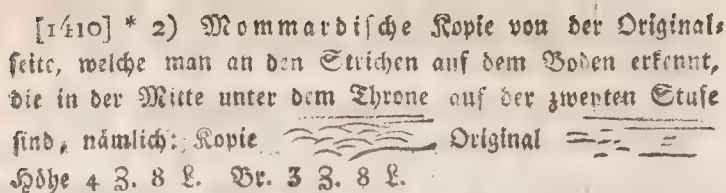 [1410] * 2) Mommardische Kopie von der Original⸗
seite, welche man an den Strichen auf dem Boden erkennt,
die in der Mitte unter dem Throne auf der zweyten Stufe
sind, nämlich: Kopie Original
Höhe 4 Z. 8 L. Br. 3 Z. 8 L.